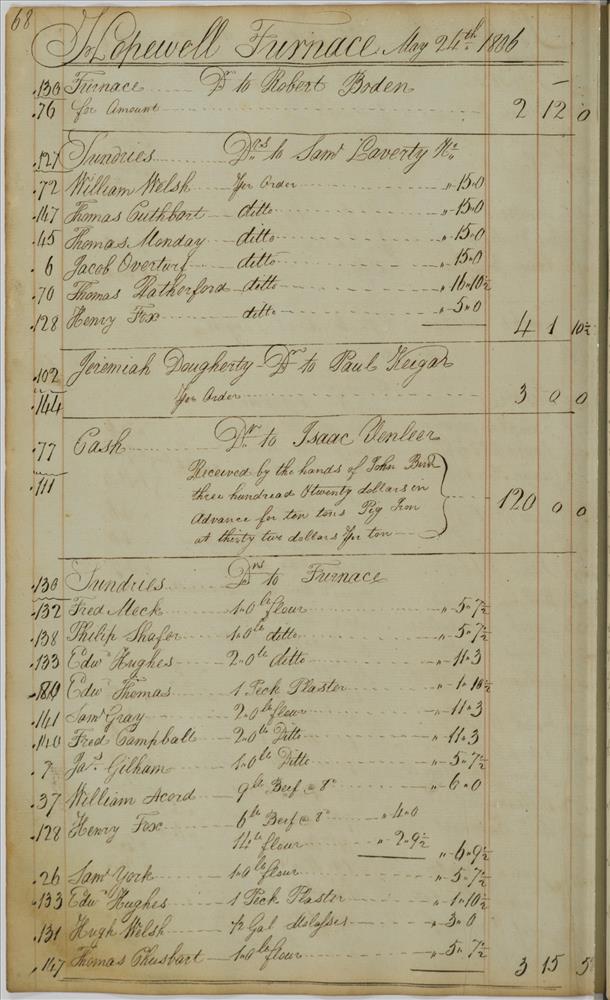 68
Hopewell Furnace May 24th 1806
130 Furnace Dr to Robert Boden
76 for Amount 2 12 0
121 Sundries Drs to Saml Laverty
72 William Welsh Per Order " 15 " 0
147 Thomas Cuthbart ditto " 15 " 0
145 Thomas Monday ditto " 15 " 0
6 Jacob Overturf ditto " 15 " 0
70 Thomas Ratherford ditto " 16 " 10½
128 Henry Fox ditto " 5 " 0
4 1 10½
102 Jeremiah Dougherty Dr to Paul Keigar
144 Per Order 3 0 0
77 Cash Dr to Isaac Venleer
111 Received by the hands of John Bird
three hundread & twenty dollars in
Advance for ten tons Pig Iron
at thirty two dollars Per ton
120 0 0
130 Sundries Drs to Furnace
132 Fred Meck 1 " 0 lb flour " 5 " 7½
138 Philip Shafer 1 " 0 lb ditto " 5 " 7½
133 Edwd Hughes 2 " 0 lb ditto " 11 " 3
Edwd Thomas 1 Peck Plaster " 1 " 10½
141 Saml Gray 2 " 0 lb flour " 11 " 3
140 Fred Campball 2 " 0 lb Ditto " 11 " 3
7 Jas Gilham 1 " 0 lb Ditto " 5 " 7½
37 William Acord 9 lb Beef @ 8d " 6 " 0
128 Henry Fox 6 lb Beef @ 8d " 4 " 0
14 lb flour " 2 " 9½
" 6 " 9½
26 Saml York 1 " 0 lb flour " 5 " 7½
133 Edwd Hughes 1 Peck Plaster " 1 " 10½
131 Hugh Welsh ½ Gal Molasses " 3 " 0
147 Thomas Chusbart 1 " 0 lb flour " 5 " 7½
3 15 5